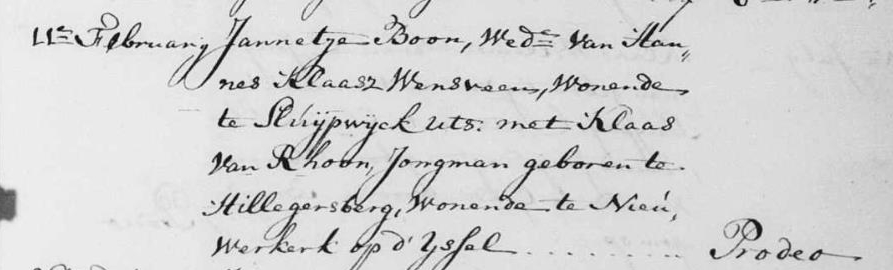 11e Februarij Jannetje Boon, Wede van Han„
nes Klaasz Wensveen, Wonende
te Sluijpwijck uts. met Klaas
van Rhoon, Jongman geboren te
Hillegersberg, Wonende te Nieu„
werkerk op d' Yssel .......... Prodeo